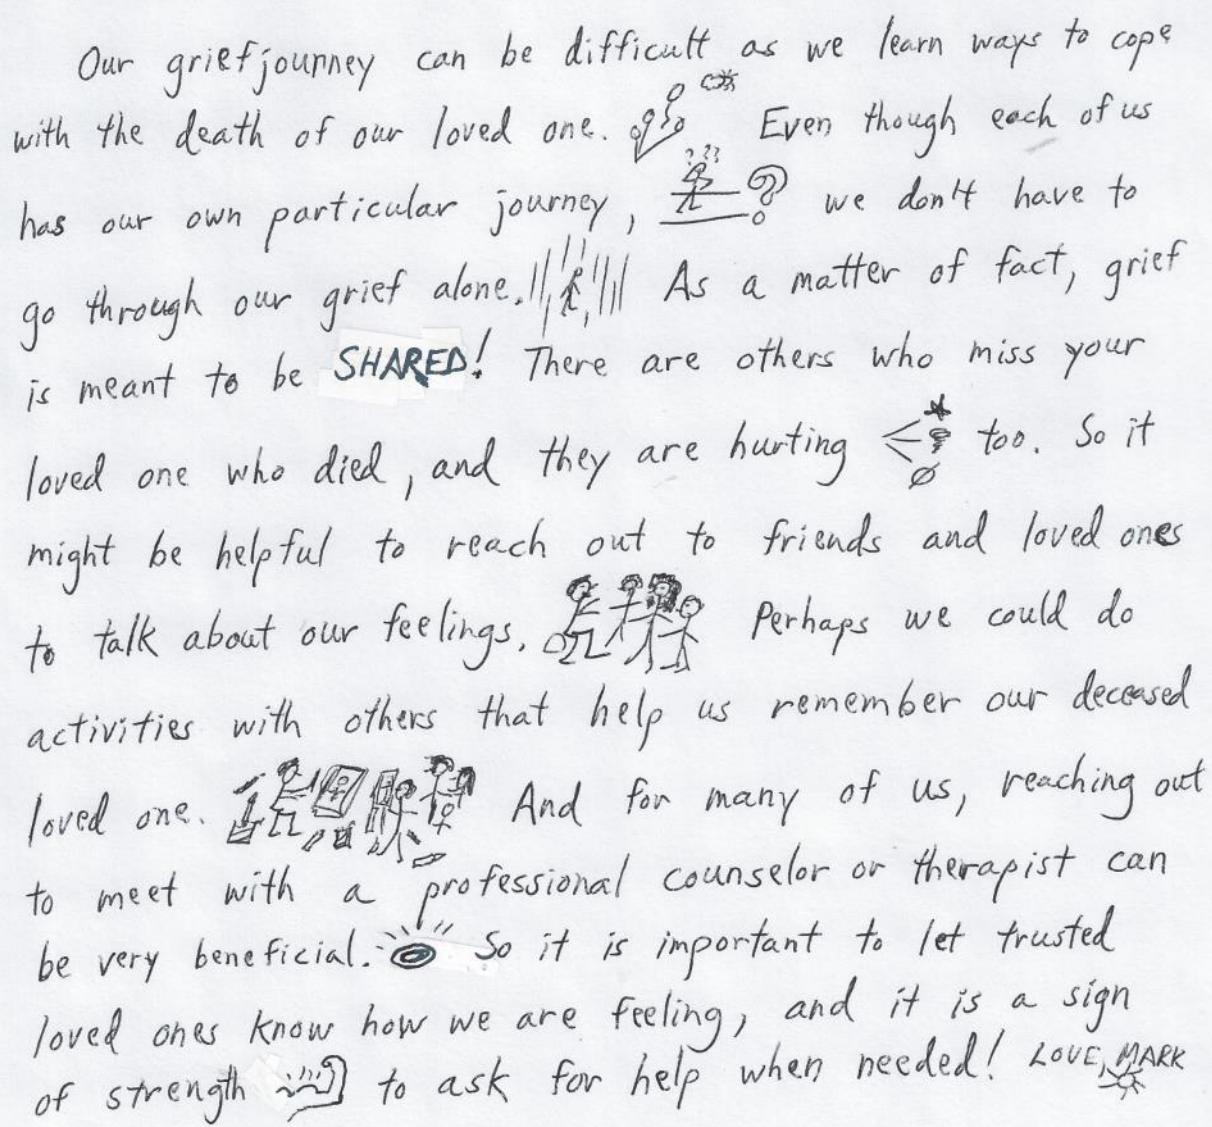 Our grief journey can be difficult as we learn ways to cope
with the death of our loved one. Even though each of us
has our own particular journey, ??? ? we don't have to
go through our grief alone. As a matter of fact, grief
is meant to be SHARED! There are others who miss your
loved one who died, and they are hurting too. So it
might be helpful to reach out to friends and loved ones
to talk about our feelings. Perhaps we could do
activities with others that help us remember our deceased
loved one. And for many of us, reaching out
to meet with a professional counselor or therapist can
be very beneficial. So it is important to let trusted
loved ones know how we are feeling, and it is a sign
of strength to ask for help when needed! LOVE, MARK